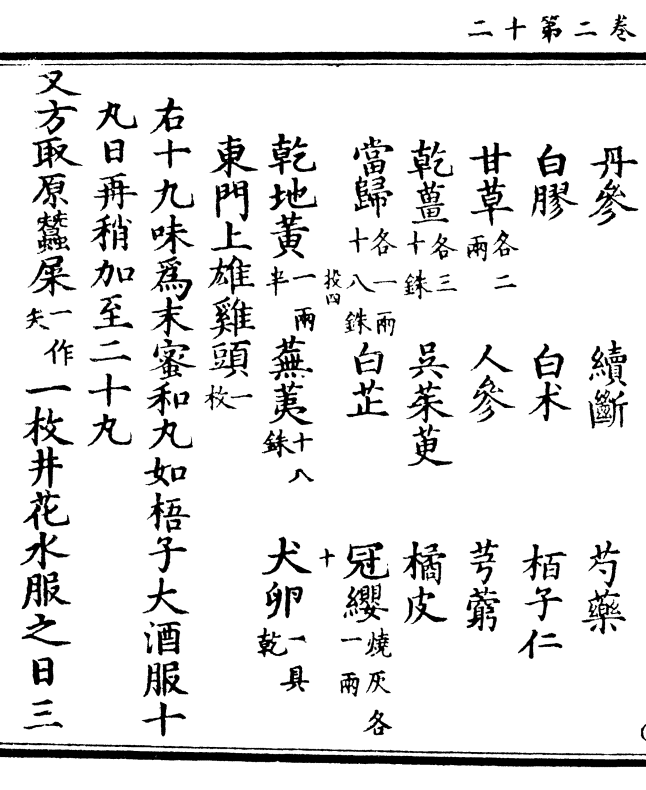 卷二第十二
丹參 續斷 芍藥
白膠 白术 栢子仁
甘草各二兩 人參 芎藭
乾薑各三十銖 吳茱萸 橘皮
當歸各一兩十八銖 白芷 冠纓燒灰各一兩
投四 十
乾地黃一兩半 蕪荑十八銖 犬卵一具乾
東門上雄雞頭一枚
右十九味爲末蜜和丸如梧子大酒服十
丸日再稍加至二十丸
又方取原蠶屎一作矢一枚井花水服之日三